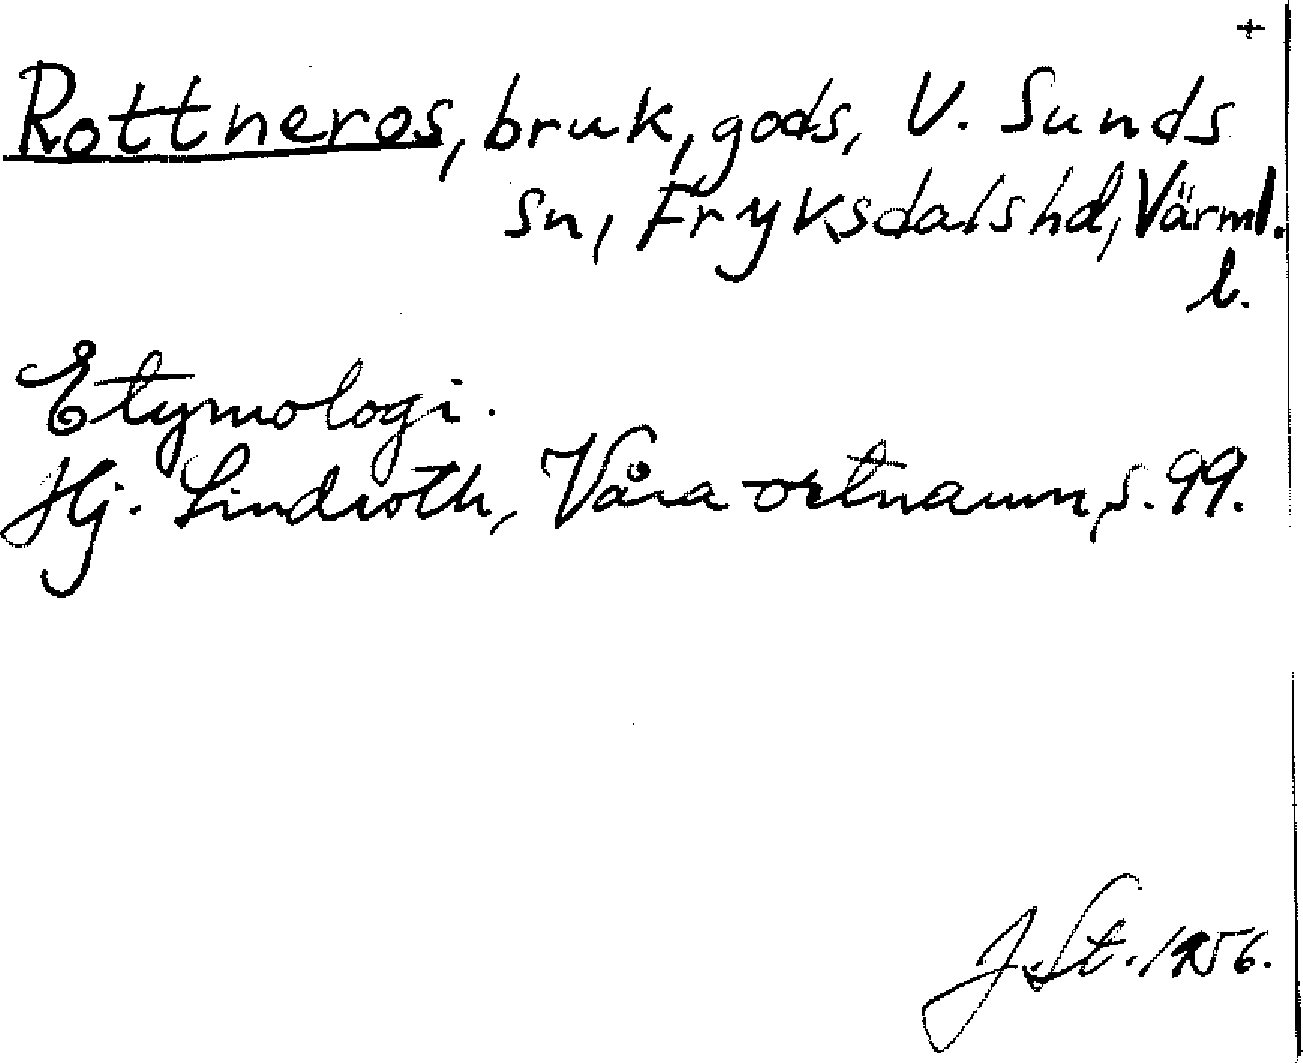 +
Rottneros, bruk, gods, V. Sunds
sn, Fryksdals hd, Värml.
l.
Etymologi.
Hj. Lindroth, Våra ortnamn, s. 99.
J. St. 1956.